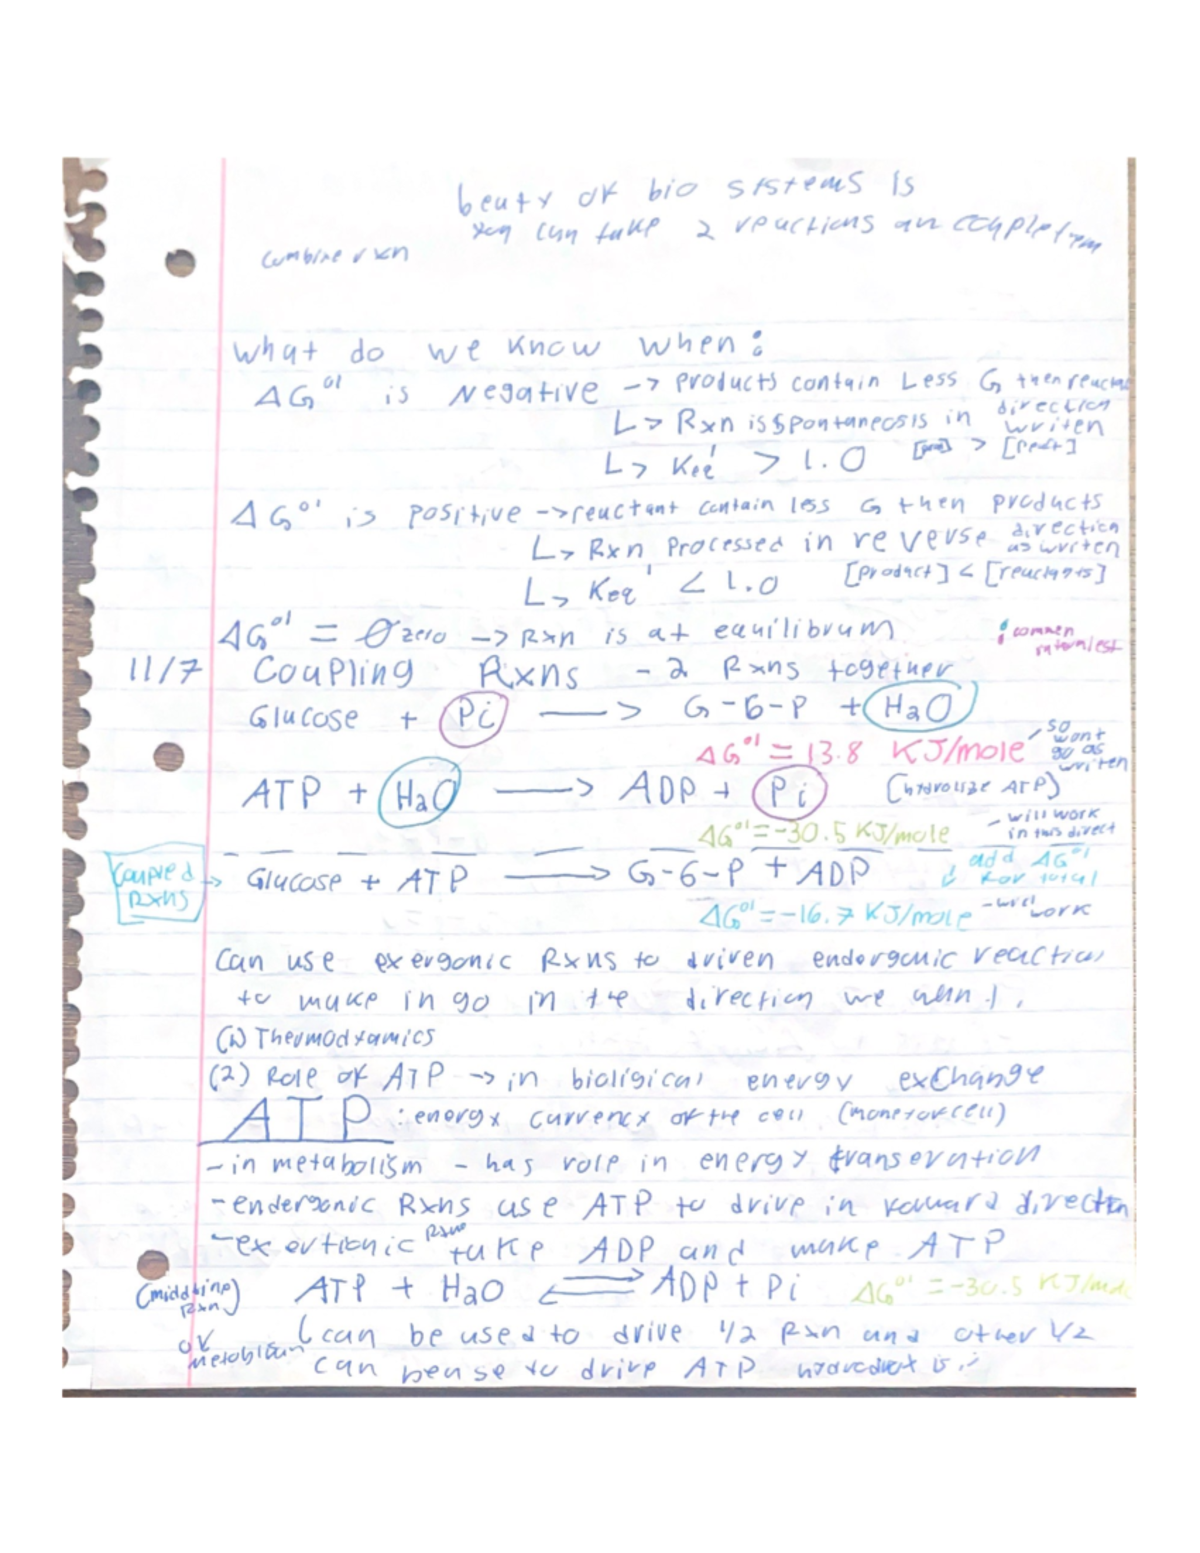 beuty of bio sistems is
you can take 2 reactions an couple tem
combine rxn
what do we know when:
ΔG°' is Negative -> products contain Less G then reactu
L> Rxn is spontaneosis in direction writen
L> Keq' > 1.0 [prod] > [react]
ΔG°' is positive -> reactant contain less G then products
L> Rxn processed in reverse direction as writen
L> Keq' < 1.0 [product] < [reactants]
ΔG°' = 0 zero -> Rxn is at equilibrum
: common
11/7 Coupling Rxns - 2 Rxns together
Glucose + Pi —> G-6-P + H2O
ΔG°' = 13.8 KJ/mole / so wont go as writen
ATP + H2O —> ADP + Pi (hydrolize ATP)
ΔG°' = -30.5 KJ/mole - will work in this direct
Coupled Rxns -> Glucose + ATP —> G-6-P + ADP add ΔG°' for total
ΔG°' = -16.7 KJ/mole - will work
Can use exergonic Rxns to driven endergonic reaction
to make in go in the direction we want.
(1) Thermodyamics
(2) Role of ATP -> in bioligical energy exchange
ATP : energy currency of the cell (money of cell)
- in metabolism - has role in energy transervation
- endergonic Rxns use ATP to drive in foward direction
- exertionic Rxns take ADP and make ATP
(middline Rxn) ATP + H2O ⇌ ADP + Pi ΔG°' = -30.5 KJ/mole
of metoblism
L can be used to drive 1/2 Rxn and other 1/2
can be use to drive ATP